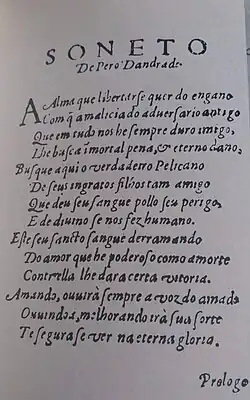 SONETO
De Pero Dandrade
A Alma que libertarse quer do engano
Com q̃ a malicia do adversario antigo
Que em tudo nos he sempre duro imigo,
Lhe busca imortal pena, & eterno dano,
Busque aqui o verdadeiro Pelicano
De seus ingratos filhos tam amigo
Que deu seu sangue pollo seu perigo,
E de divino se nos fez humano.
Este seu sancto sangue derramando
Do amor que he poderoso como a morte
Contr ella lhe dara certa vitoria.
Amando, ouvirà sempre a voz do amado
Ouvindo a, melhorando irà sua sorte
Te segura se ver na eterna gloria.
Prologo